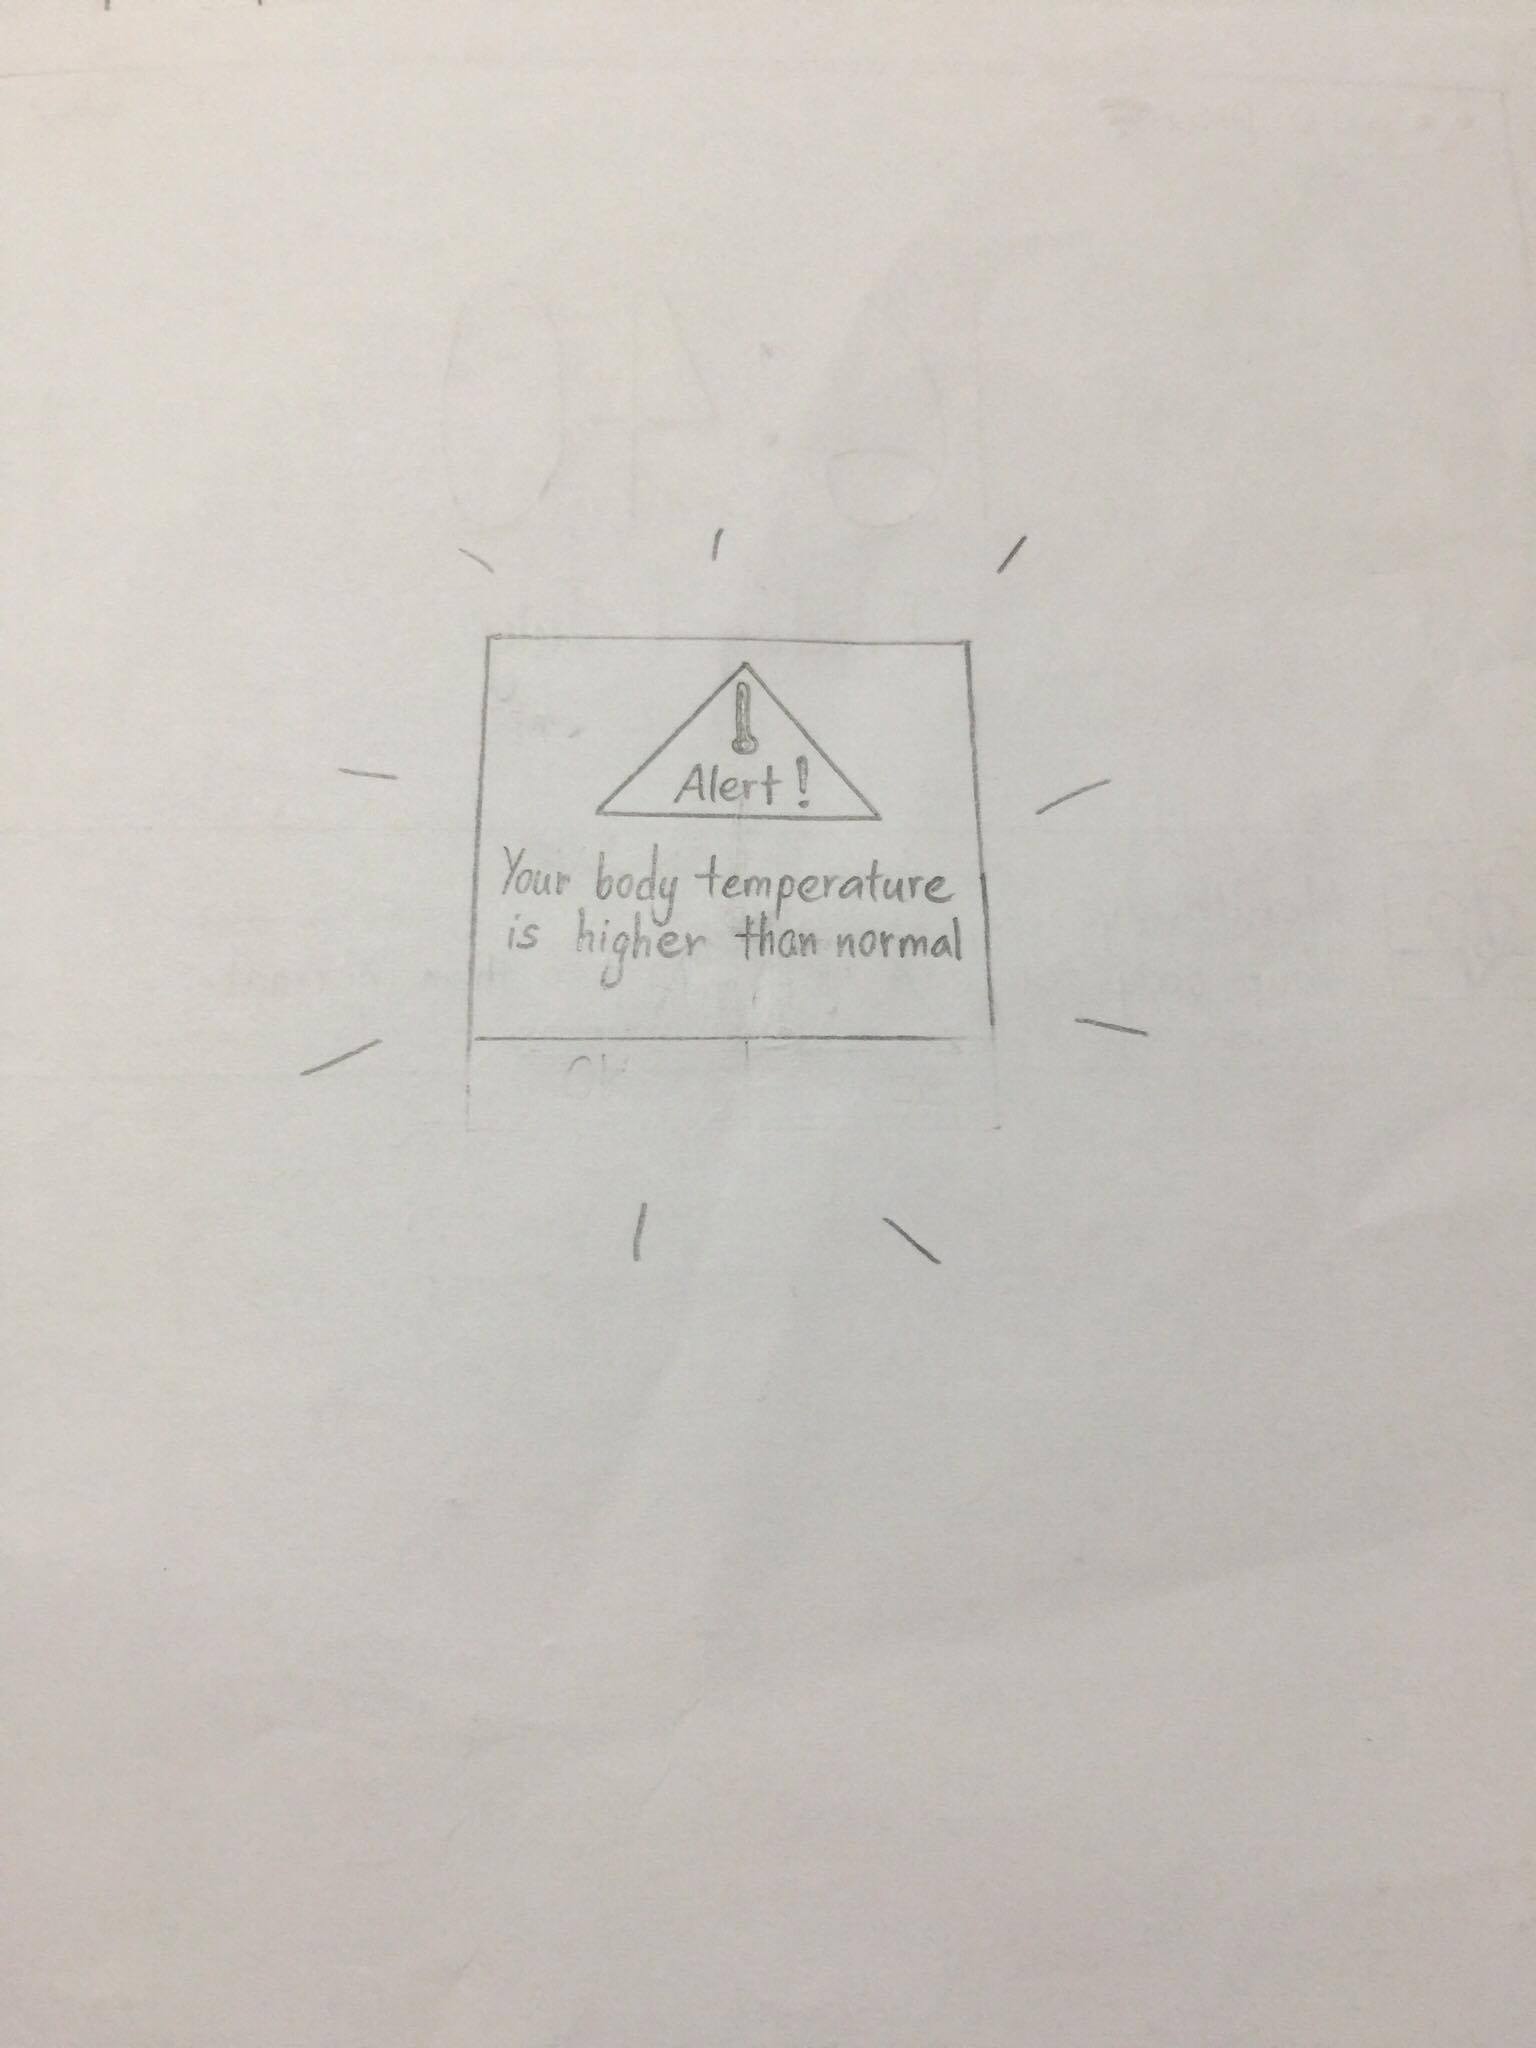 Alert!
Your body temperature
is higher than normal